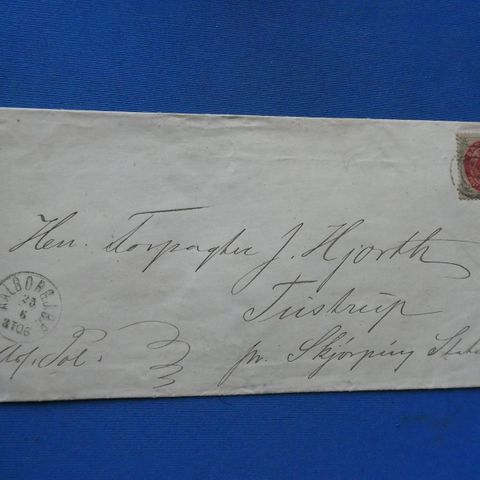 Herr. Forpagter J. Hjorth
Tustrup
pr. Skjørping Stat
AALBORG J.B.P.
23
6
3 TOG